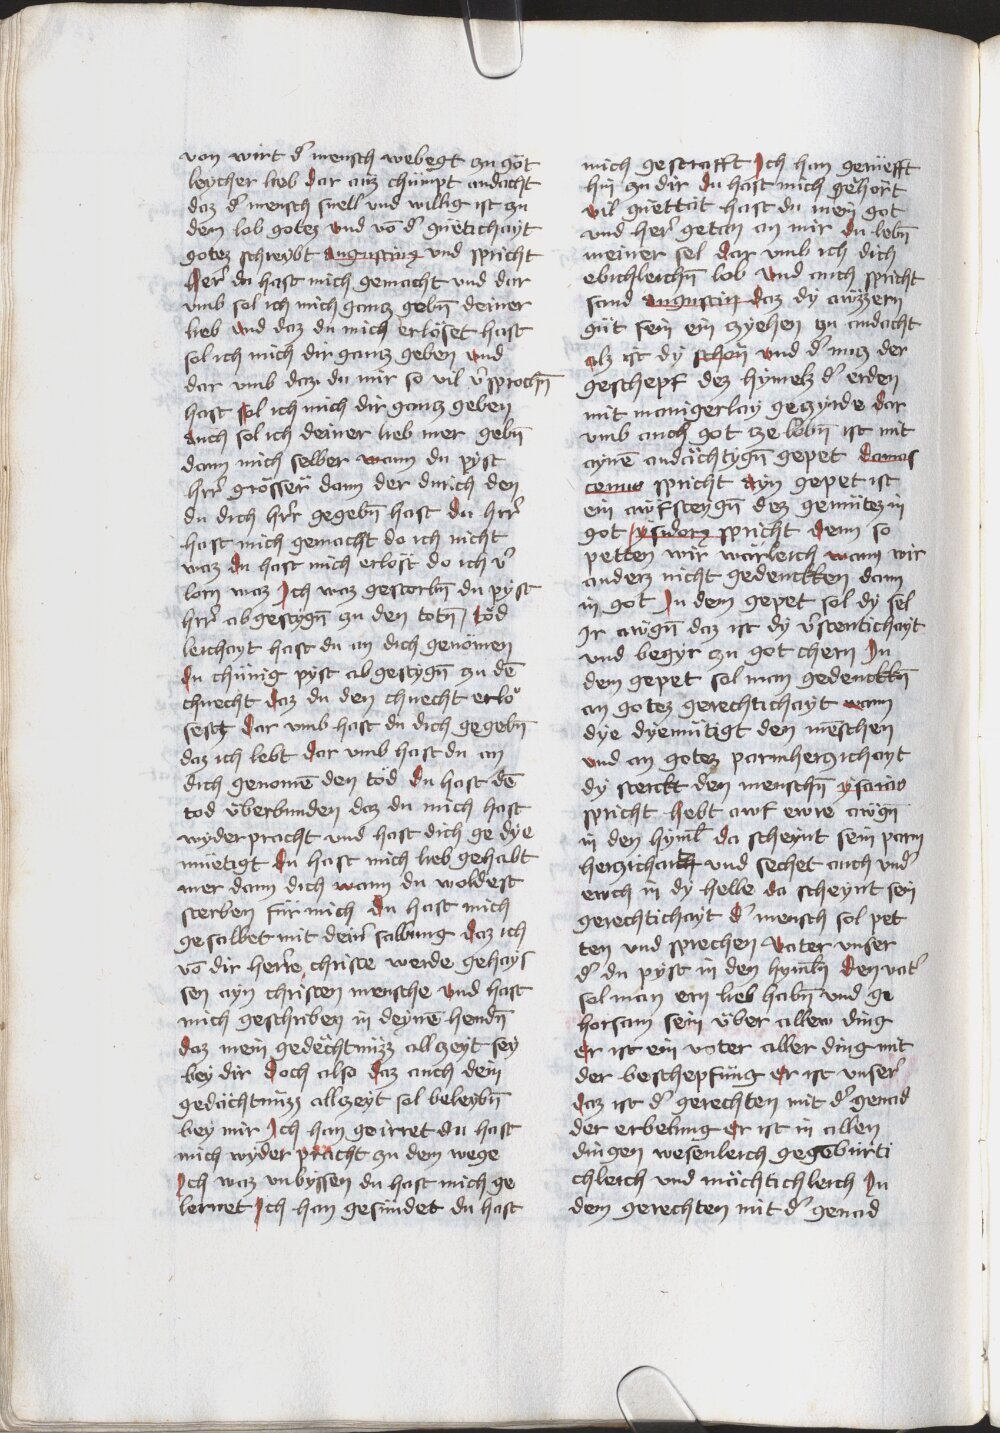 von wirt dˀ mensch webegt zu göt
leycher lieb dar auz chümpt andacht
daz dˀ mensch snell vnd willig ist zu
dem lob gotez vnd vō dˀ güetichayt
gotez schreybt augustinus vnd spricht
herˀ du hast mich gemacht vnd dar
vmb sol ich mich gancz gebn̄ deiner
lieb vnd daz du mich erlöset hast
sol ich mich dir gancz geben vnd
dar vmb daz du mir so vil vˀsprochn̄
hast sol ich mich dir gancz geben
auch sol ich deiner lieb mer gebn̄
dann mich selber wann du pyst
hrˀr grösser dann der durich den
du dich hrˀr gegebn̄ hast du hrˀr
hast mich gemacht do ich nicht
waz du hast mich erlöst do ich vˀ
lorn waz Ich waz gestorbn̄ du pyst
hrˀr abgestygn̄ zu den totn̄ töd
leichayt hast du an dich genömen
du chünig pyst abgestygn̄ zu dē
chnecht daz du den chnecht erlö
sest dar vmb hast du dich gegebn̄
daz ich lebt dar vmb hast du an
dich genomē den töd du hast dē
tod überbunden daz du mich hast
wyderpracht vnd hast dich ge dye
müetigt du hast mich lieb gehabt
mer dann dich wann du woldest
sterben für mich du hast mich
gesalbet mit deinˀ salbung daz ich
vō dir herre christe werde gehays
sen ayn christen mensche vnd hast
mich geschriben in deynē hendn̄
daz mein gedechtnüzz allzeyt sey
bey dir doch also daz auch dein
gedächtnüzz allzeyt sol beleybn̄
bey mir Ich han geirret du hast
mich wyder pracht zu dem wege
Ich waz vnbyssen du hast mich ge
lernet Ich han gesündet du hast
mich gestrafft Ich han gerüefft
hin zu dir du hast mich gehört
vil güettät hast du mein got
vnd herˀ getan an mir du lebn̄
meiner sel dar vmb ich dich
ebichleichn̄ lob vnd auch spricht
sand augustin daz dy awzzern
güt sein ein zyehen zu andacht
alz ist dy schon vnd dˀ nucz der
geschepf dez hymelz dˀ erden
mit manigerlay gezyrde dar
vmb auch got ze lobn̄ ist mit
aynē andächtygn̄ gepet damas
cenus spricht ayn gepet ist
ein awfsteygn̄ dez gemütez in
got ysidorus spricht denn so
petten wir warleich wann wir
anderz nicht gedenckken dann
in got In dem gepet sol dy sel
Ir awgn̄ daz ist dy vˀstentichayt
vnd begyr zu got chern In
dem gepet sol man gedenckkn̄
an gotez gerechtichayt wann
dye dyemütigt den menschen
vnd an gotez parmherczichayt
dy sterckt den menschn̄ ysaias
spricht hebt awf ewre awgn̄
in den hyml̄ da scheynt sein parm
herczichait vnd sechet auch vndˀ
ewch in dy helle da scheynt sein
gerechtichayt dˀ mensch sol pet
ten vnd sprechen vater vnser
dˀ du pyst in den hymln̄ den vatˀ
sol man ern lieb habn̄ vnd ge
horsam sein über allew ding
er ist ein vater aller ding mit
der beschepfüng er ist vnserˀ
daz ist dˀ gerechten mit dˀ genad
der erbelung er ist in allen
dingen wesenleich gegebürti
chleich vnd mächtichleich In
dem gerechten mit dˀ genad